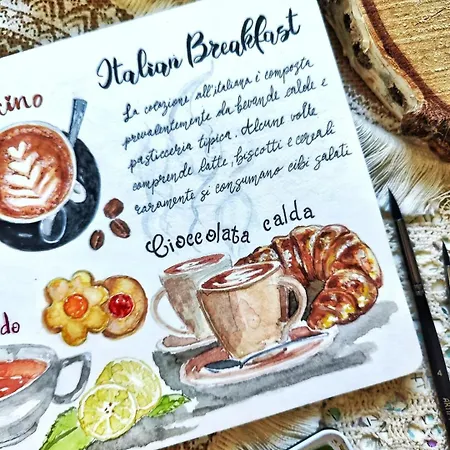 Italian Breakfast
La colazione all'italiana è composta
prevalentemente da bevande calde e
pasticceria tipica. Alcune volte
comprende latte, biscotti e cereali
raramente si consumano cibi salati.
cino
Cioccolata calda
do
4